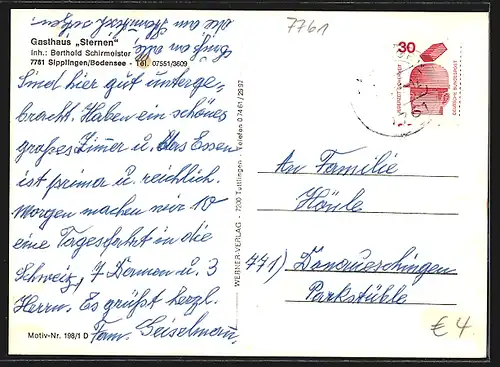 7761
Gasthaus „Sternen“
Inh.: Berthold Schirmeister
7761 Sipplingen/Bodensee - Tel. 07551/3609
Sind hier gut unterge-
bracht. Haben ein schönes
großes Zimer u. das Essen
ist prima u. reichlich.
Morgen machen wir 10
eine Tagesfahrt in die
Schweiz, 7 Damen u. 3
Herrn. Es grüßt herzl.
Fam. Geiselmann
die am Stammtisch
Grüße an alle,
Motiv-Nr. 198/1 D
WERNER-VERLAG - 7200 Tuttlingen - Telefon 0 74 61 / 29 97
30
JEDERZEIT SICHERHEIT
DEUTSCHE BUNDESPOST
An Familie
Häule
771) Donaueschingen
Parkstüble
€ 4.